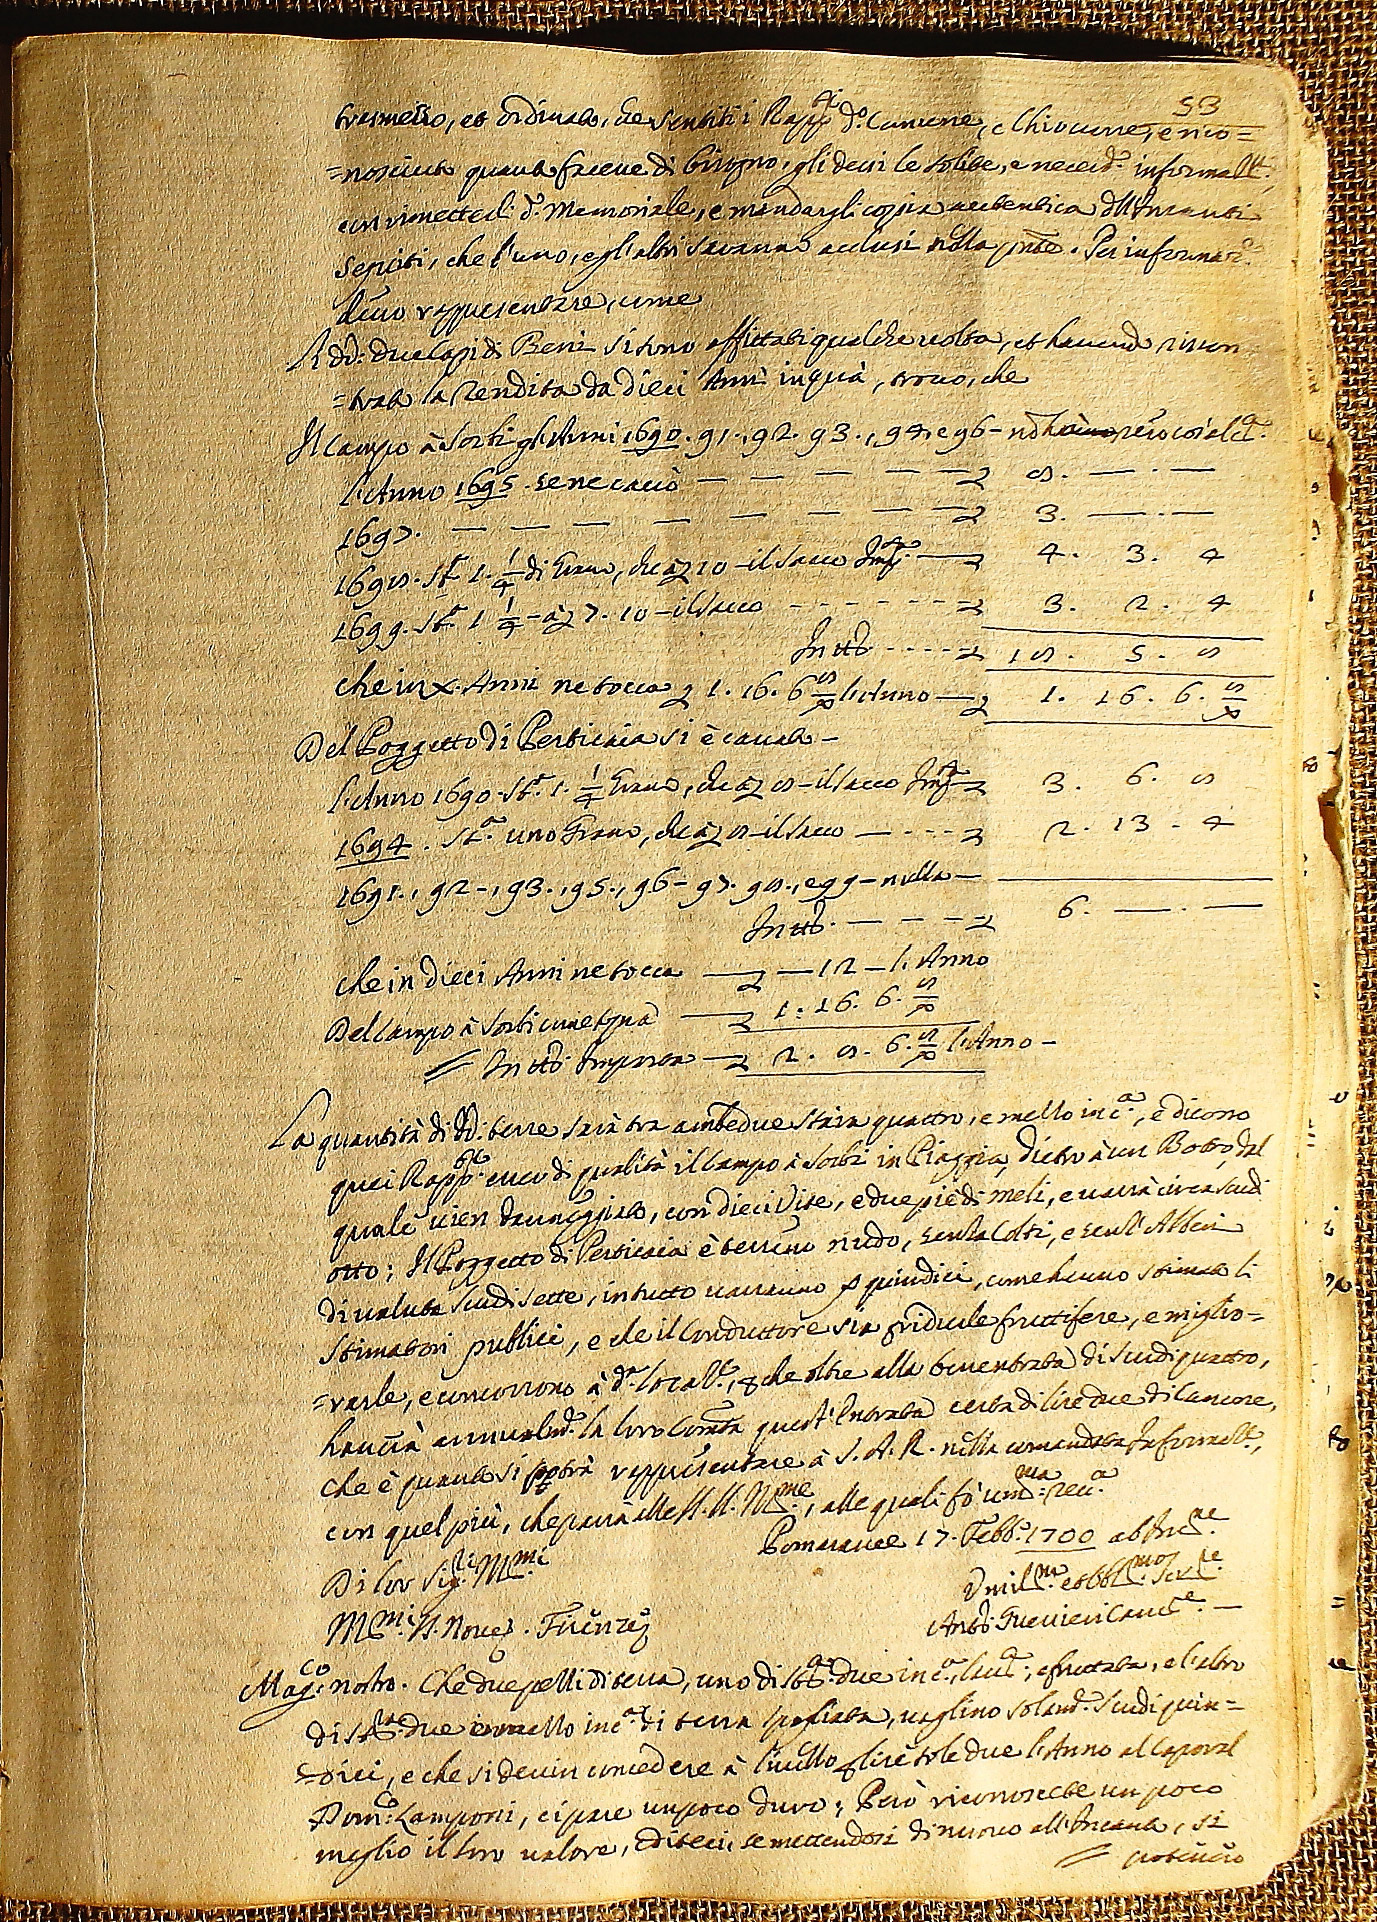 53
trasmesso, et ordinato, che sentiti i Rapp.ti d.o Comune, e Chi occorre, e rico=
=nosciuto quanto faceve di bisogno, gli dessi le solite, e necess.e informatt.i
con rimetterli d.o Memoriale, e mandargli coppia autentica dell'Incanti
seguiti, che l'uno, e gl'altri saranno acclusi nella pnte. Per informaz.e
devo rappresentare, come
Li dd: due Capi di Beni si sono affittati qualche volta, et havendo riscon=
=trato la Rendita da dieci Anni in quà, trovo, che
Il Campo à Sorbi gl'Anni 1690. 91., 92. 93., 94. e 96 –
l'Anno 1695. se ne cavò — — — — — £ 8. — . —
1697. — — — — — — — — £ 3. — . —
1698. St.a 1. 1/4 di Grano, che à £ 10 – il sacco Imp.a — £ 4. 3. 4
1699. St.a 1 1/4 – à £ 7. 10 – il sacco - - - - - - £ 3. 2. 4
In tt.o - - - - £ 18. 5. 8
che in X. Anni ne tocca £ 1. 16. 6 8/X l'Anno — £ 1. 16. 6. 8/X
Del Poggetto di Perticaia si è cavato –
l'Anno 1690. St.a 1. 1/4 Grano, che à £ 8 – il sacco Imp.a £ 3. 6. 8
1694. St.a uno Grano, che à £ 8 – il sacco — . - - £ 2. 13. 4
1691., 92 –, 93., 95., 96 – 97. 98., e 99 – nulla —
In tt.o — — — £ 6. — . —
che in dieci Anni ne tocca — £ — 12 – l'Anno
Del Campo à Sorbi come sopra — £ 1. 16. 6. 8/X
= In tt.o Importa — £ 2. 8. 6. 8/X l'Anno –
La quantità di dd: terre sarà tra ambedue Staia quattro, e mezzo in c.a, e dicono
quei Rapp.ti esser di qualità il Campo à Sorbi in Piaggia, dietro à un Botro, dal
quale vien danneggiato, con dieci Vite, e due piè di meli, e varrà circa scudi
otto; Il Poggetto di Perticaia è terreno nudo, senza Colti, e senz'Alberi
di valuta scudi sette, in tutto varranno p quindici, come hanno stimato li
Stimatori publici, e che il Conduttore sia p ridurle fruttifere, e miglio=
=rarle, e concorrono à d.a locat.e, p che oltre alla ben entrata di scudi quattro,
haverà annualm.te la loro Com.tà quest'Entrata certa di lire due di Canone,
che è quanto si potrà rappresentare à S. A. R. nella comandata Informatt.e,
con quel più, che parrà alle SS. VV. M.me, alle quali fò um.ma reu.a
Pomarance 17. Febb.o 1700 ab Inc.ne
Di lor Sig.ri M.mi
Umil.mo et obbl.mo Ser.re
M.mi SS. Nove. Firenze
Ant.o Guerrieri Canc.re —
Mag.co nostro. Che due pezzi di terra, uno di St.a due in c.a lau.a, e fruttata, e l'altro
di St.a due e mezzo in c.a di terra spogliata, vaglino solam.te scudi quin=
=dici, e che si devin concedere à livello p lire sole due l'Anno al Caporal
Dom.co Lamponi, ci pare un poco duro; Però riconoscete un poco
meglio il loro valore, e diteci, se mettendosi di nuovo all'Incanto, si
= potessero